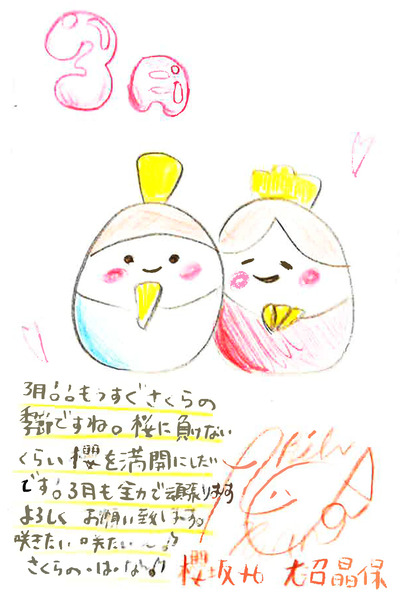 3月
3月!!もうすぐさくらの
季節ですね。桜に負けない
くらい櫻を満開にしたい
です!!3月も全力で頑張ります
よろしくお願い致します。
咲きたい咲たい〜♪
さくらの・は・な♪
櫻坂46 大沼晶保